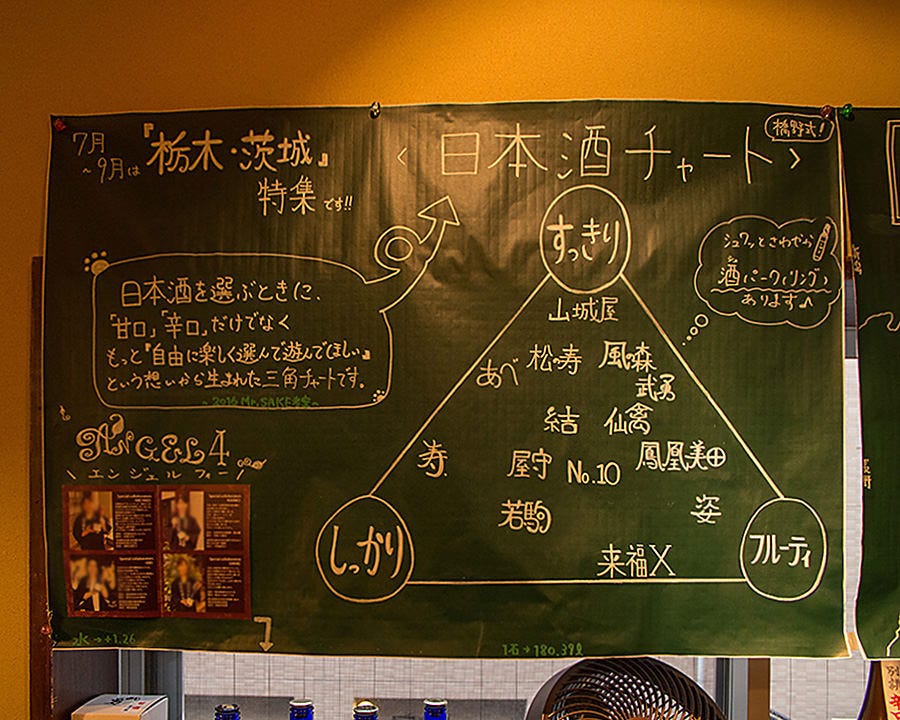 7月
～9月は
『栃木・茨城』
特集です!!
〈日本酒チャート〉
橋野式!
日本酒を選ぶときに、
「甘口」「辛口」だけでなく
もっと『自由に楽しく選んで遊んでほしい』
という想いから生まれた三角チャートです。
～2016 Mr.SAKE考案～
シュワッとさわやか
酒パークリング
あります♪
すっきり
山城屋
あべ
松の寿
風の森
武勇
結
仙禽
寿
屋守
No.10
鳳凰美田
若駒
姿
来福X
しっかり
フルーティ
ANGEL4
\エンジェルフォー/
水→+1.26
1石→180.39ℓ